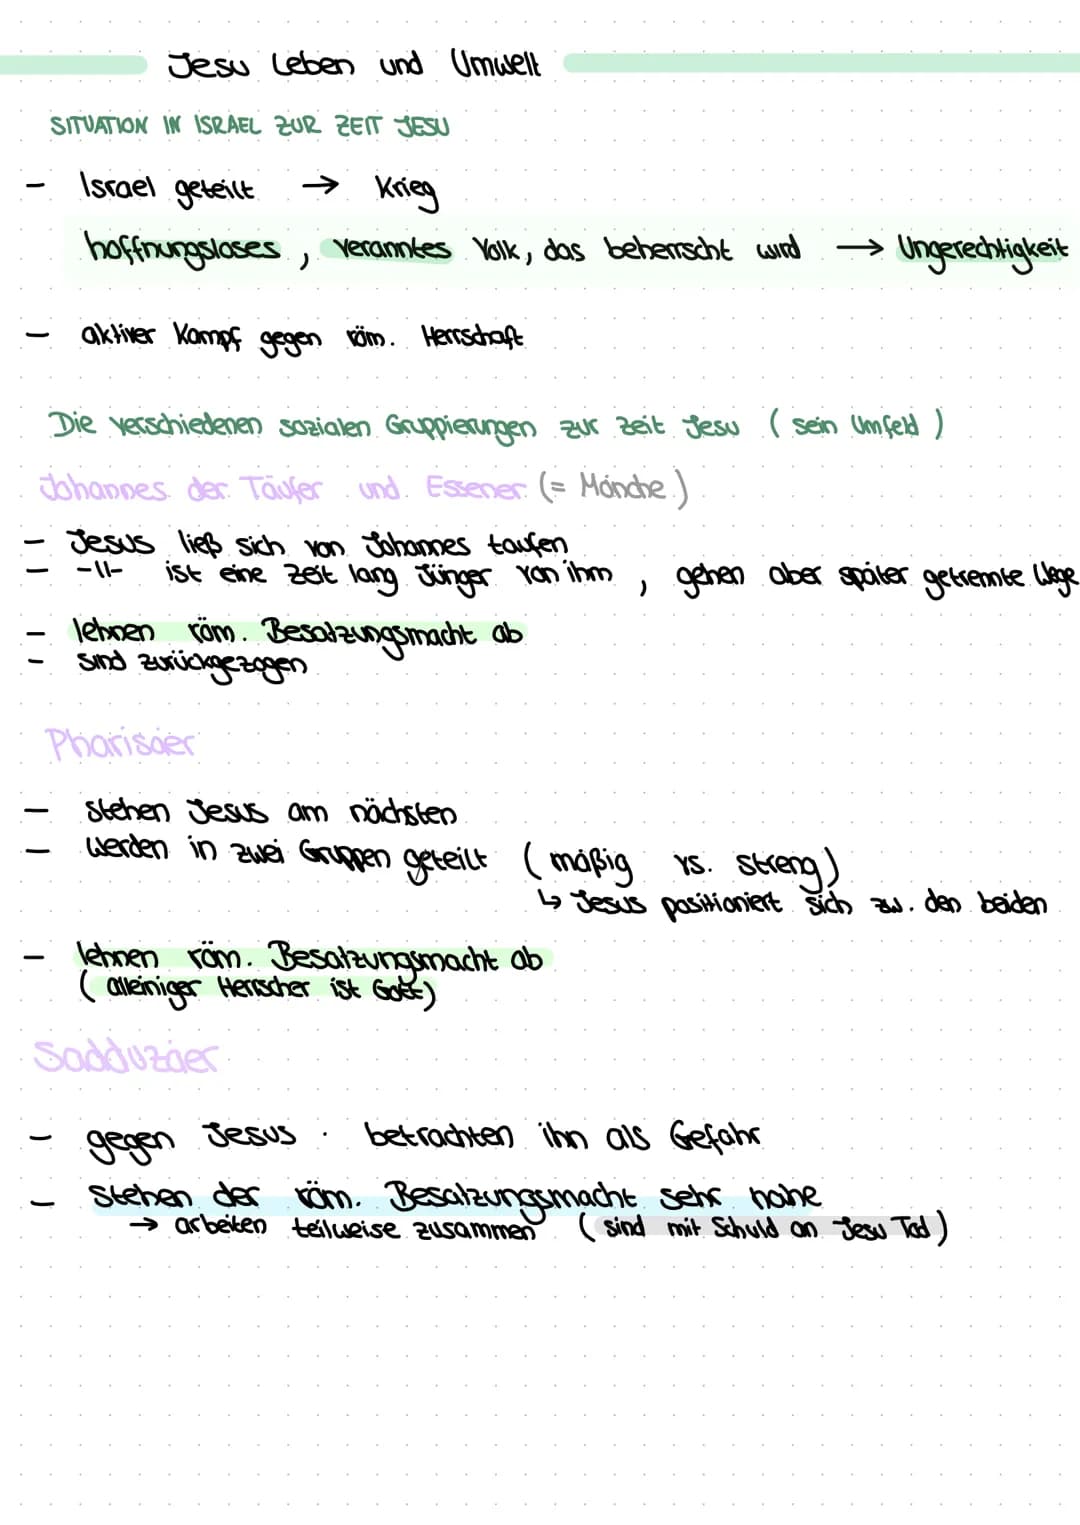 Jesu Leben und Umwelt
SITUATION IN ISRAEL ZUR ZEIT JESU
- Israel geteilt → Krieg
hoffnungsloses, verarmtes Volk, das beherrscht wird → Ungerechtigkeit
- aktiver Kampf gegen röm. Herrschaft
Die verschiedenen sozialen Gruppierungen zur Zeit Jesu (sein Umfeld)
Johannes der Täufer und Essener (= Mönche)
- Jesus ließ sich von Johannes taufen
- -||- ist eine Zeit lang Jünger von ihm, gehen aber später getrennte Wege
- lehnen röm. Besatzungsmacht ab
- sind zurückgezogen
Pharisäer
- stehen Jesus am nächsten
- werden in zwei Gruppen geteilt (mäßig vs. streng)
↳ Jesus positioniert sich zw. den beiden
- lehnen röm. Besatzungsmacht ab
(alleiniger Herrscher ist Gott)
Sadduzäer
- gegen Jesus · betrachten ihn als Gefahr
- stehen der röm. Besatzungsmacht sehr nahe
→ arbeiten teilweise zusammen (sind mit Schuld an Jesu Tod)